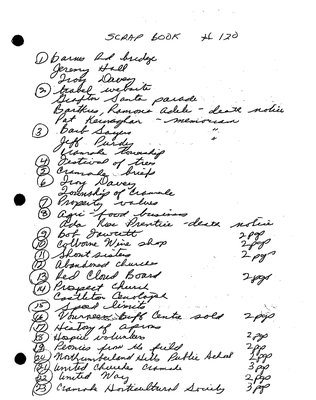 SCRAP BOOK # 120
① Barnes Red bridge
Jeremy Hall
Troy Davey
② Grafton Santa parade
Bartkiw, Ramona Adele - death notice
Pat Keenaghan - memorium
③ Barb Sayers "
Jeff Purdy "
Cramahe township
④ Festival of trees
⑤ Cramahe briefs
⑥ Troy Davey
Township of Cramahe
⑦ Property values
⑧ Agri-food business
Ada Rose Prentice - death notice
⑨ Bob 2 pgs
⑩ Colborne Wine shop 2 pgs
⑪ Short sisters 2 pgs
⑫ Abandoned churches
⑬ Red Cloud Board 2 pgs
⑭ Prospect Church
Castleton Cenotaph
⑮ Speed limits
⑯ Centre sold 2 pgs
⑰ History of aprons
⑱ Hospic volunteers 2 pgs
⑲ Peonies from the field 2 pgs
⑳ Northumberland Hills Public School 2 pgs
㉑ United Churches Cramahe 3 pgs
㉒ United Way 2 pgs
㉓ Cramahe Horticultural Society 3 pgs